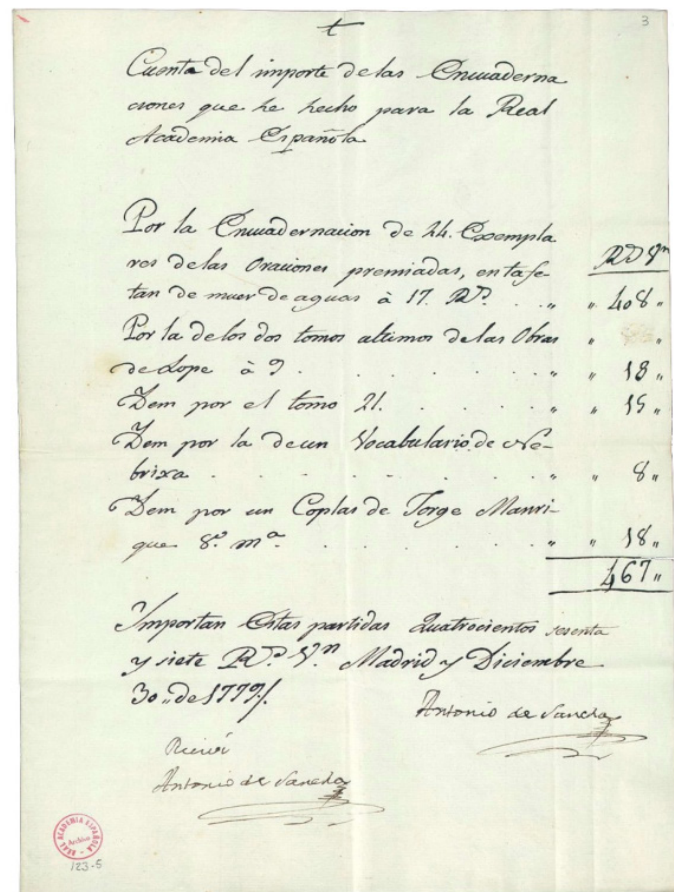 3
Cuenta del importe de las Encuaderna
ciones que he hecho para la Real
Academia Española
Por la Encuadernacion de 24. Exempla
res de las Oraciones premiadas, en tafe-
RDVn
tan de muer de aguas à 17. RD. . . „ „ 408 „
Por la de los dos tomos ultimos de las Obras „
de Lope à 9 . . . . . . „ „ 18 „
Idem por el tomo 21. . . . . . „ „ 15 „
Idem por la de un Vocabulario de Ne-
brixa . . . . . . . . „ „ 8 „
Idem por un Coplas de Jorge Manri-
que 8.º m.ª . . . . . . „ „ 18 „
467 „
Importan Estas partidas Quatrocientos sesenta
y siete RD. Vn. Madrid y Diciembre
30 „ de 1779/.
Antonio de Sancha
Recivi
Antonio de Sancha
REAL ACADEMIA ESPAÑOLA
Archivo
123-5